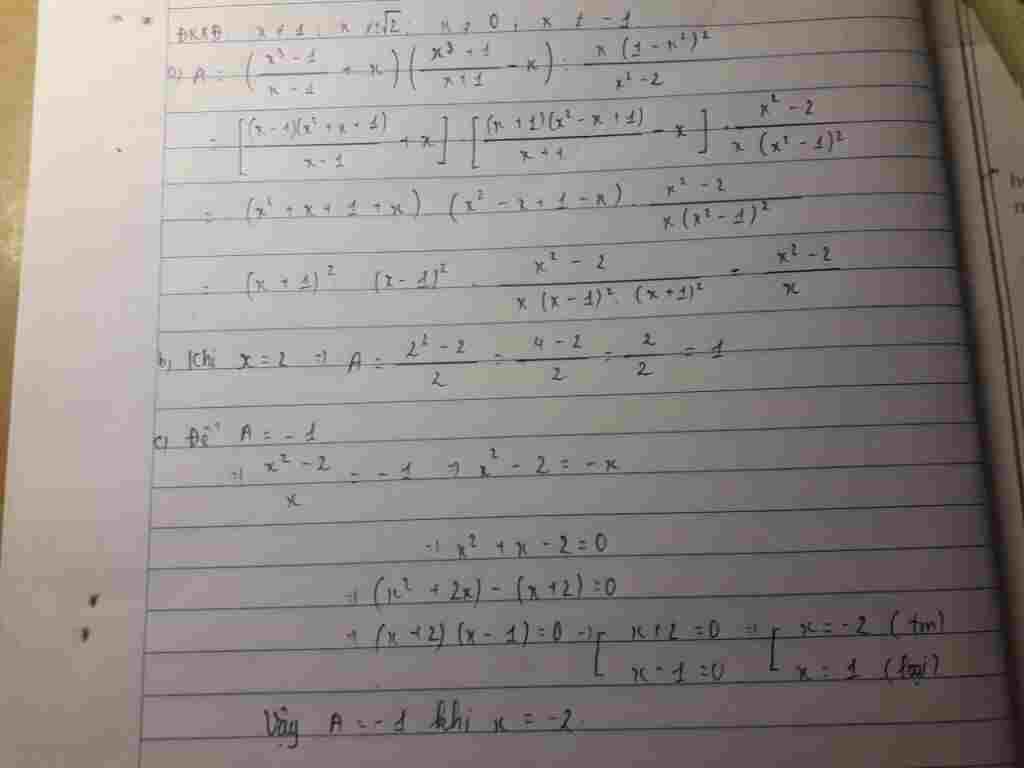 ĐKXĐ x ≠ 1 ; x ≠ ±√2 ; x ≠ 0 ; x ≠ -1
a) A = ((x³ - 1)/(x - 1) + x) ((x³ + 1)/(x + 1) - x) : (x (1 - x²)²)/(x² - 2)
= [((x - 1)(x² + x + 1))/(x - 1) + x] [((x + 1)(x² - x + 1))/(x + 1) - x] · (x² - 2)/(x (x² - 1)²)
= (x² + x + 1 + x) (x² - x + 1 - x) · (x² - 2)/(x (x² - 1)²)
= (x + 1)² (x - 1)² · (x² - 2)/(x (x - 1)² · (x + 1)²) = (x² - 2)/x
b) Khi x = 2 ⇒ A = (2² - 2)/2 = (4 - 2)/2 = 2/2 = 1
c) Để A = -1
⇒ (x² - 2)/x = -1 ⇒ x² - 2 = -x
⇒ x² + x - 2 = 0
⇒ (x² + 2x) - (x + 2) = 0
⇒ (x + 2) (x - 1) = 0 ⇒ [ x + 2 = 0 ⇒ [ x = -2 (tm)
x - 1 = 0 x = 1 (loại)
Vậy A = -1 khi x = -2.